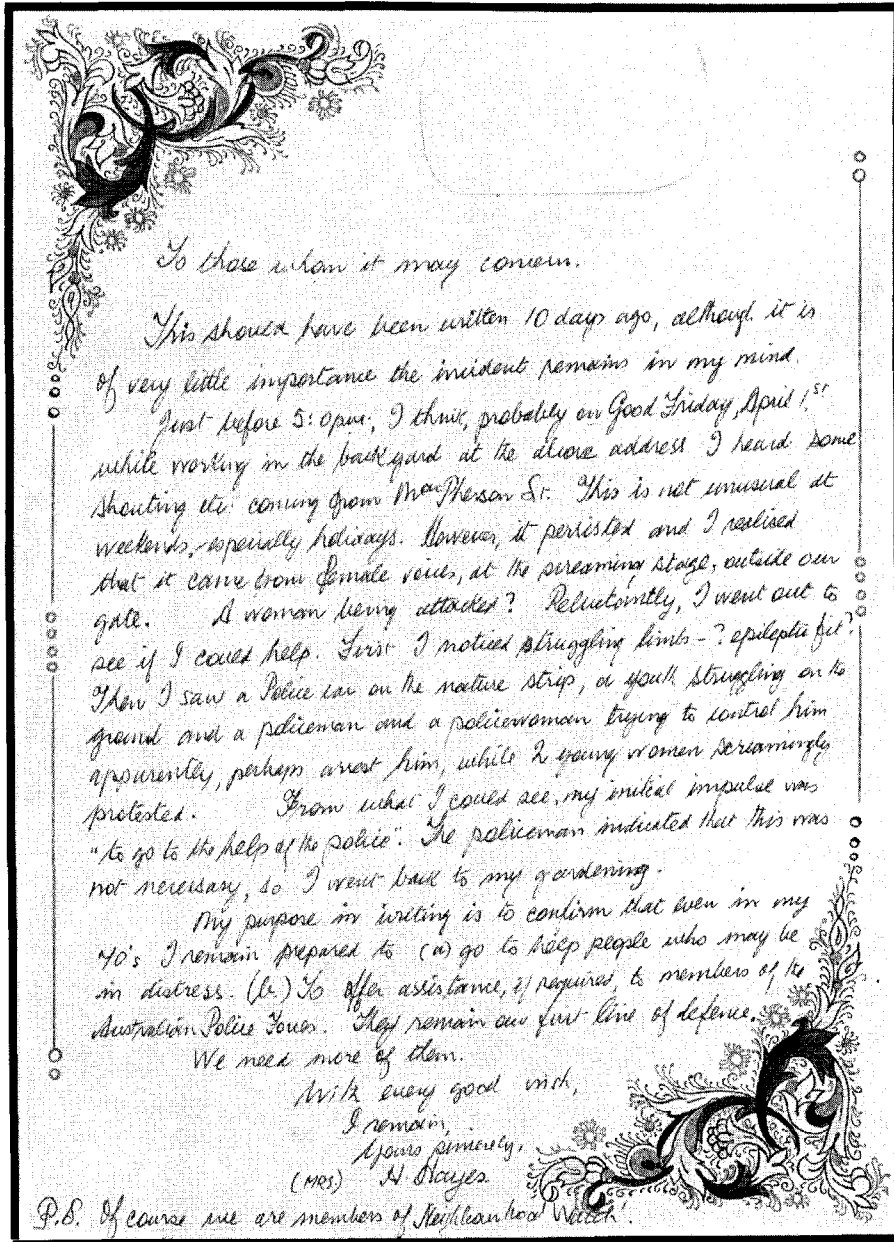 To those whom it may concern.
This should have been written 10 days ago, although it is
of very little importance the incident remains in my mind.
Just before 5:0pm, I think, probably on Good Friday, April 1st
while working in the back yard at the above address I heard some
shouting etc. coming from MacPherson St. This is not unusual at
weekends, especially holidays. However, it persisted and I realised
that it came from female voices, at the screaming stage, outside our
gate. A woman being attacked? Reluctantly, I went out to
see if I could help. First I noticed struggling limbs - ? epileptic fit?
Then I saw a Police car on the nature strip, a youth struggling on the
ground and a policeman and a policewoman trying to control him
apparently, perhaps arrest him, while 2 young women screamingly
protested. From what I could see, my initial impulse was
"to go to the help of the police". The policeman indicated that this was
not necessary, so I went back to my gardening.
My purpose in writing is to confirm that even in my
70's I remain prepared to (a) go to help people who may be
in distress. (b.) To offer assistance, if required, to members of the
Australian Police Forces. They remain our first line of defence.
We need more of them.
With every good wish,
I remain,
Yours sincerely,
(MRS.) H. Hayes
P.S. Of course we are members of 'Neighbourhood Watch'.